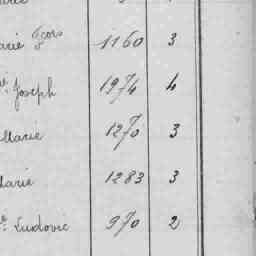 arie Fcois 1160 3
Joseph 1974 4
Marie 1270 3
Marie 1283 3
Ludovic 970 2